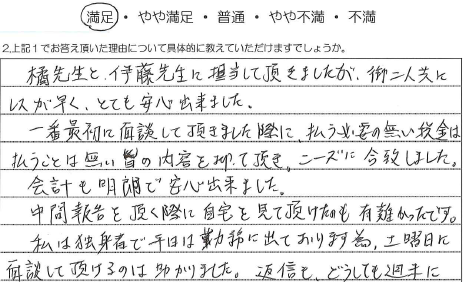 満足 ・ やや満足 ・ 普通 ・ やや不満 ・ 不満
2.上記1でお答え頂いた理由について具体的に教えていただけますでしょうか。
橘先生と伊藤先生に担当して頂きましたが、御二人共に
レスが早く、とても安心出来ました。
一番最初に面談して頂きました際に、払う必要の無い税金は
払うことは無い旨の内容を仰って頂き、ニーズに合致しました。
会計も明朗で安心出来ました。
中間報告を頂く際に自宅を見て頂けたのも有難かったです。
私は独身者で平日は勤務に出ております為、土曜日に
面談して頂けるのは助かりました。返信も、どうしても週末に